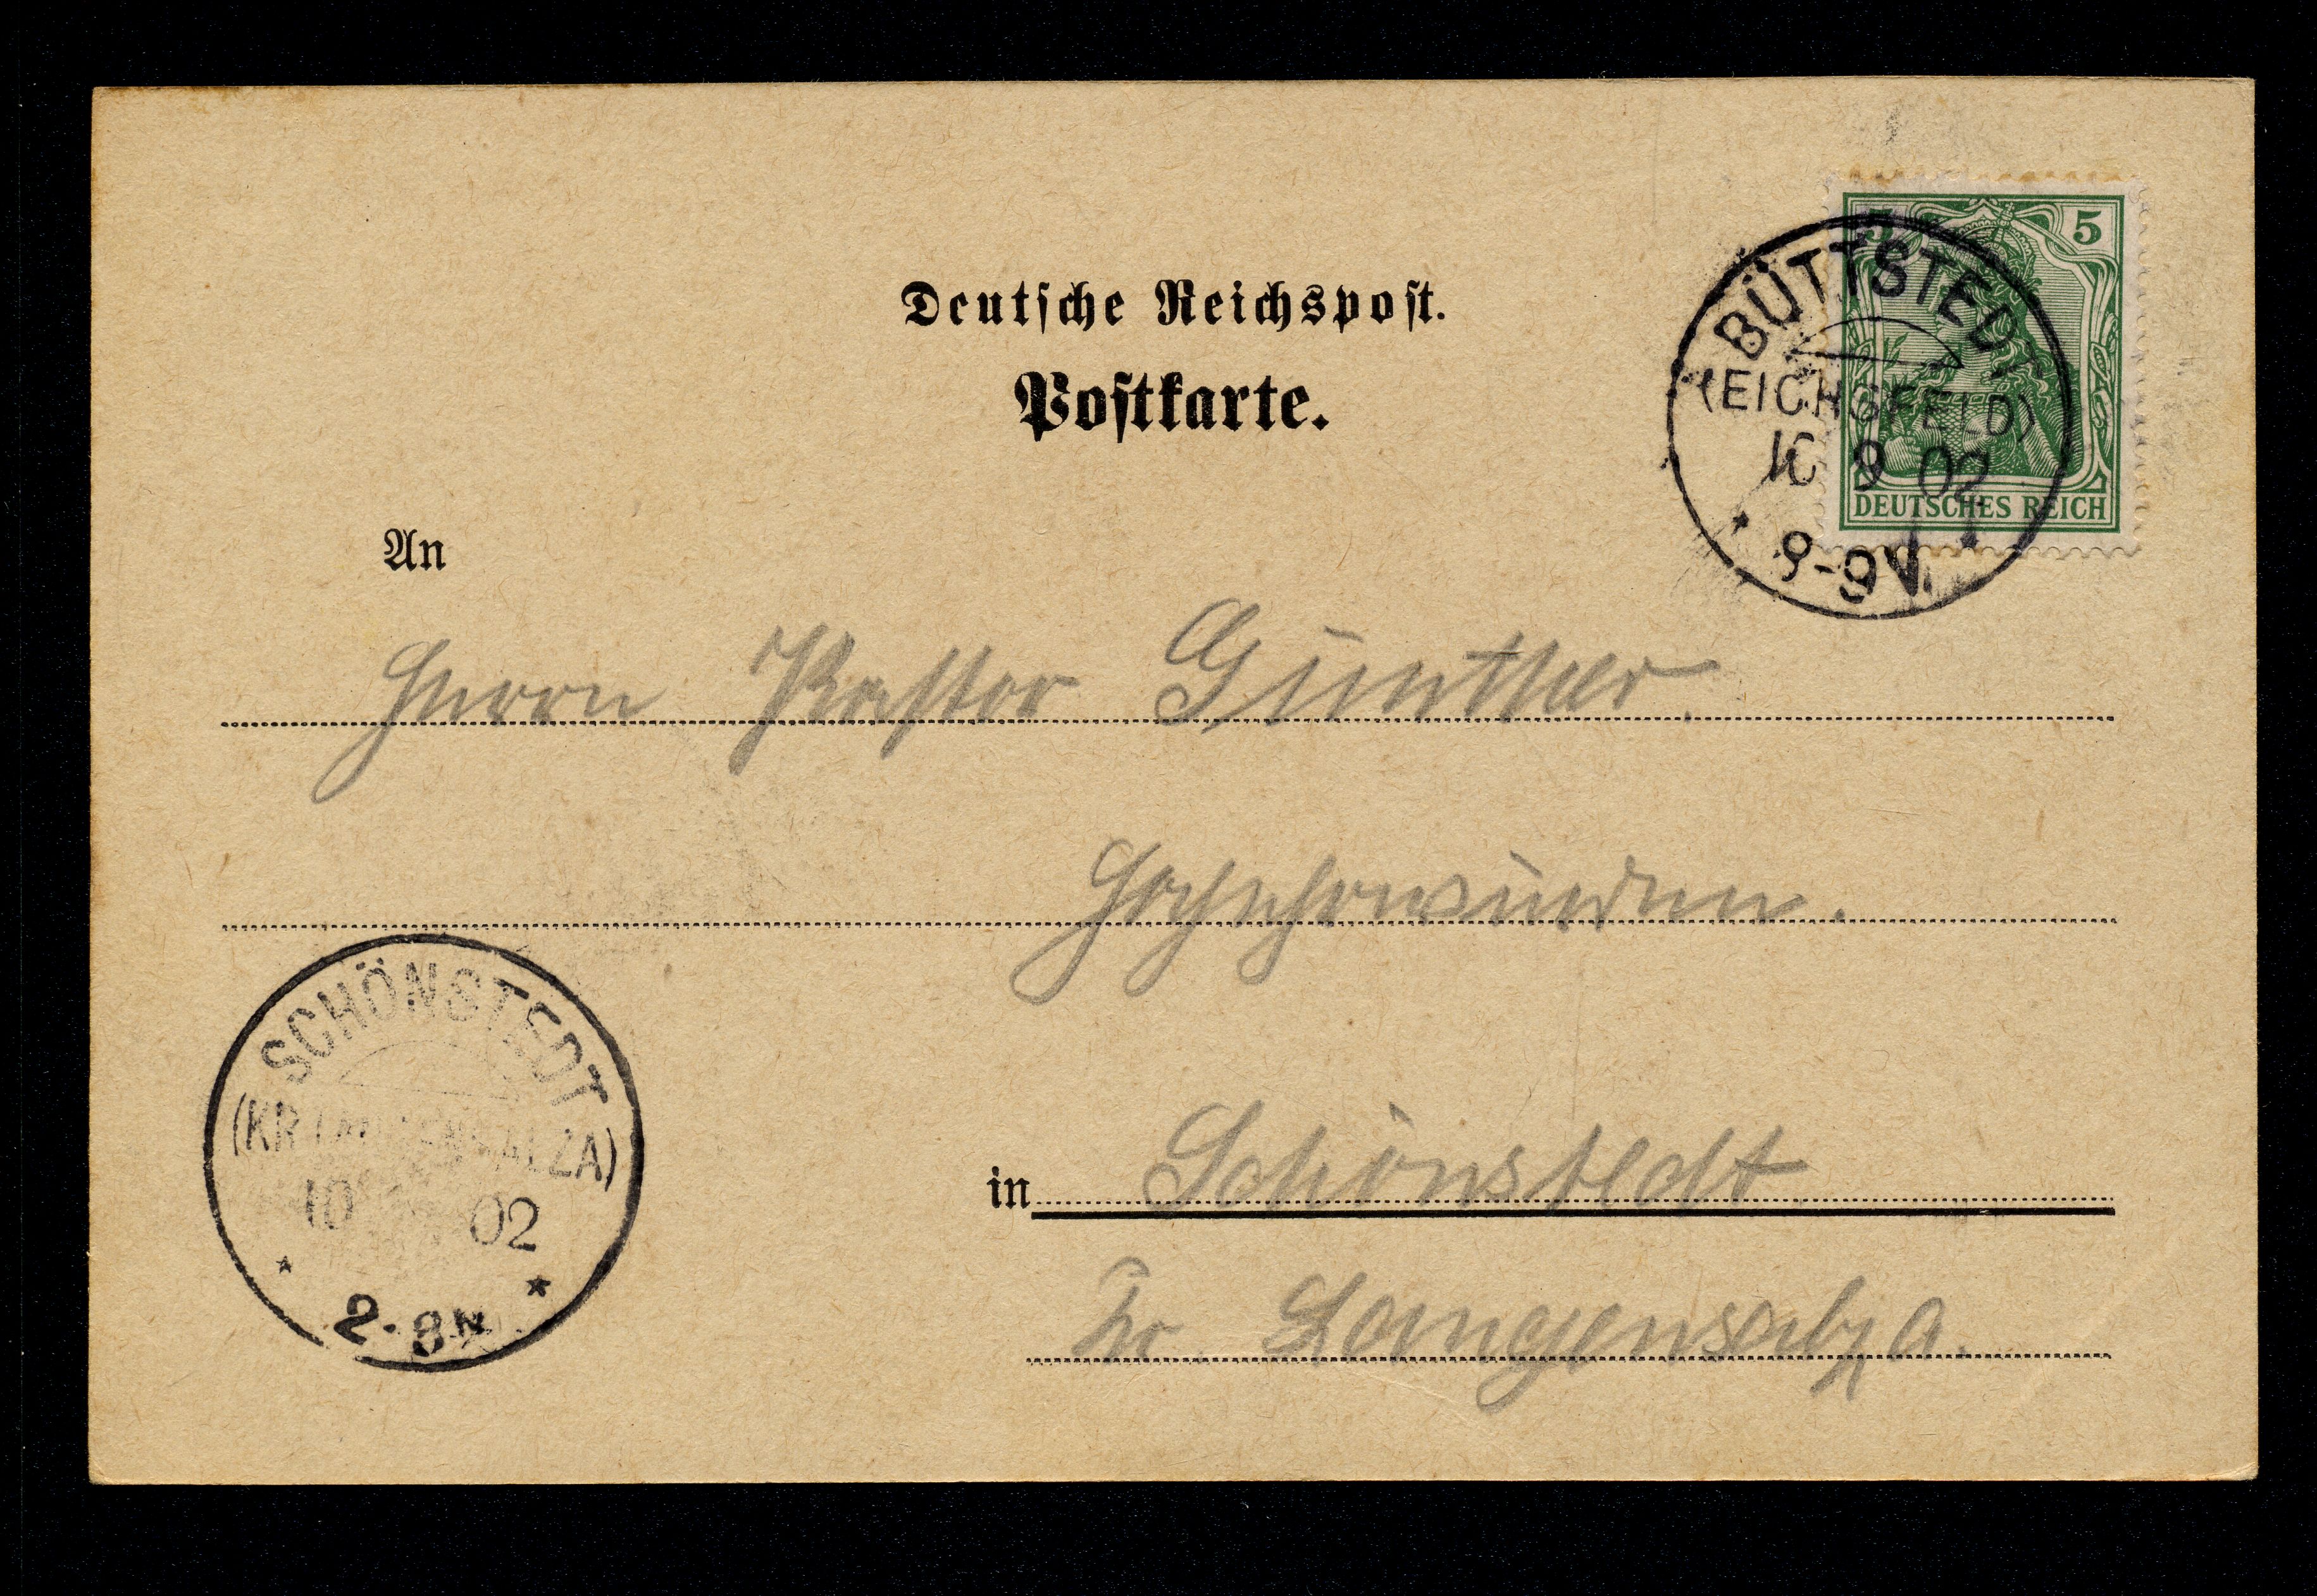 Deutsche Reichspost.
Postkarte.
5 5
DEUTSCHES REICH
BÜTTSTEDT
(EICHSFELD)
10 9 02
8-9V.
An
Herrn Pastor Günther.
in Schönstedt
Kr. Langensalza.
SCHÖNSTEDT
(KR LANGENSALZA)
10 02
2-3N